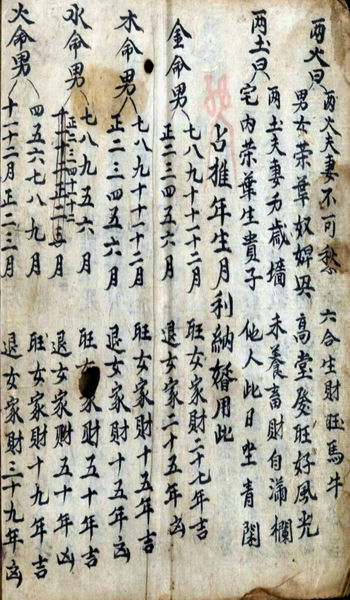 兩火曰 兩火夫妻不可愁 六合生財旺馬牛
男女荣華奴婢興 高堂慶旺好風光
兩土曰 兩土夫妻方成墻 未養畜財自滿欄
宅内荣華生貴子 他人此日坐青閑
占推年生月利納婚用此
金命男 七八九十十一十二月 旺女家財二十七年吉
正二三四五六月 退女家財二十五年凶
木命男 七八九十十一十二月 旺女家財十五年吉
正二三四五六月 退女家財十五年凶
水命男 七八九五六月 旺女家財五十年吉
正二三四 月 退女家財五十年凶
火命男 四五六七八九月 旺女家財十九年吉
十一十二月正二三月 退女家財三十九年凶